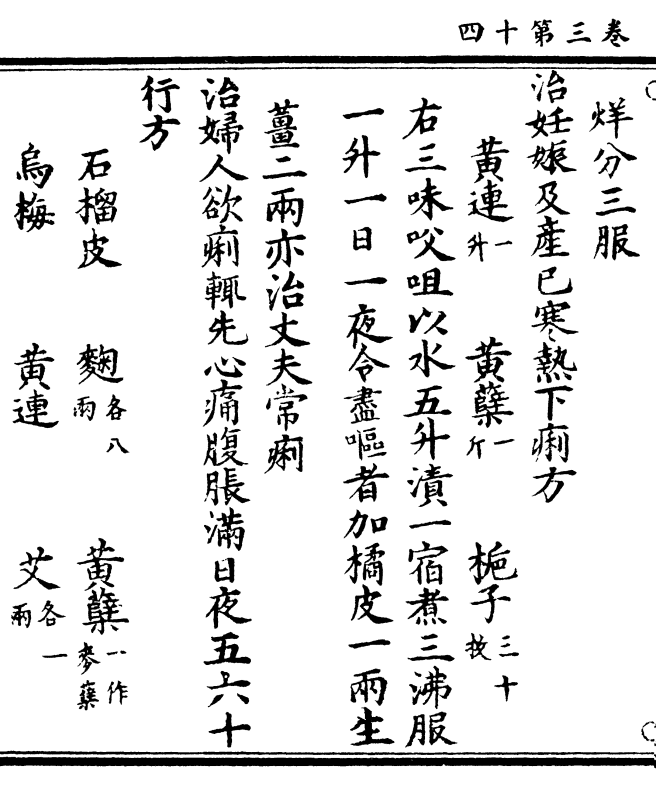 卷三第十四
烊分三服
治妊娠及產已寒熱下痢方
黃連一升 黃蘗一斤 梔子三十枚
右三味㕮咀以水五升漬一宿煮三沸服
一升一日一夜令盡嘔者加橘皮一兩生
薑二兩亦治丈夫常痢
治婦人欲痢輒先心痛腹脹滿日夜五六十
行方
石榴皮 麴各八兩 黃蘗一作麥蘗
烏梅 黃連 艾各一兩